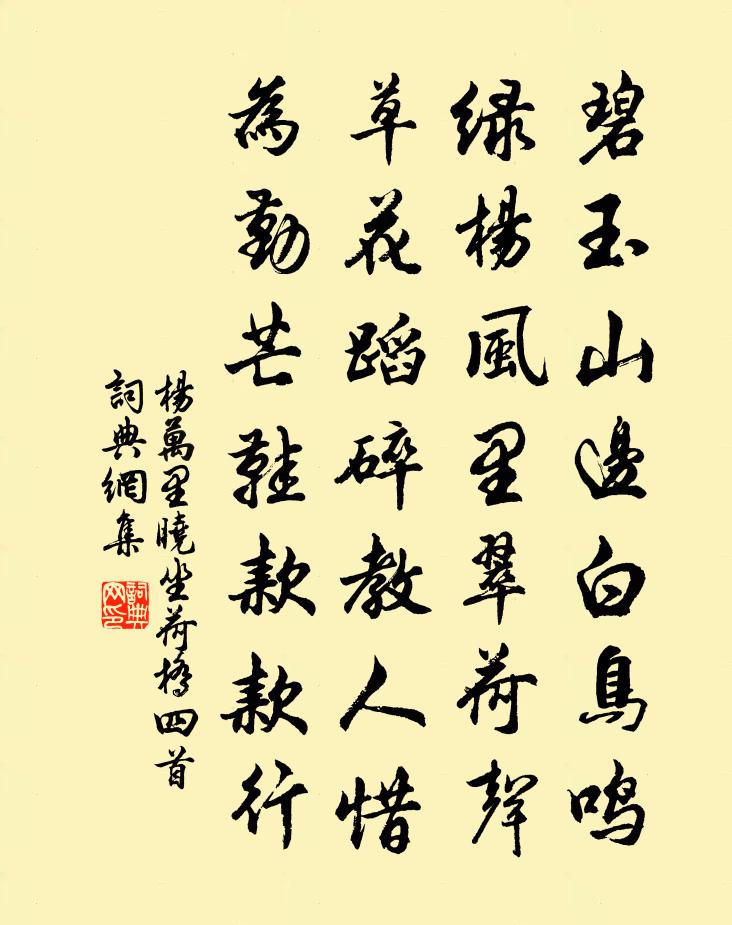 碧玉山邊白鳥鳴
綠楊風里翠荷聲
草花蹈碎教人惜
為勤芒鞋款款行
楊萬里曉坐荷橋四首
詞典網集
詞典網印